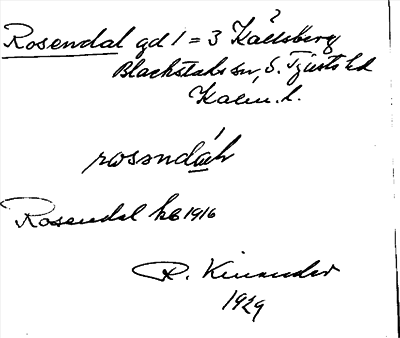 Rosendal gd 1 = 3 Källsberg
Blackstads sn, S. Tjusts hd
Kalm. l.
rosəndáh
Rosendal hb 1916
R. Kinander
1929